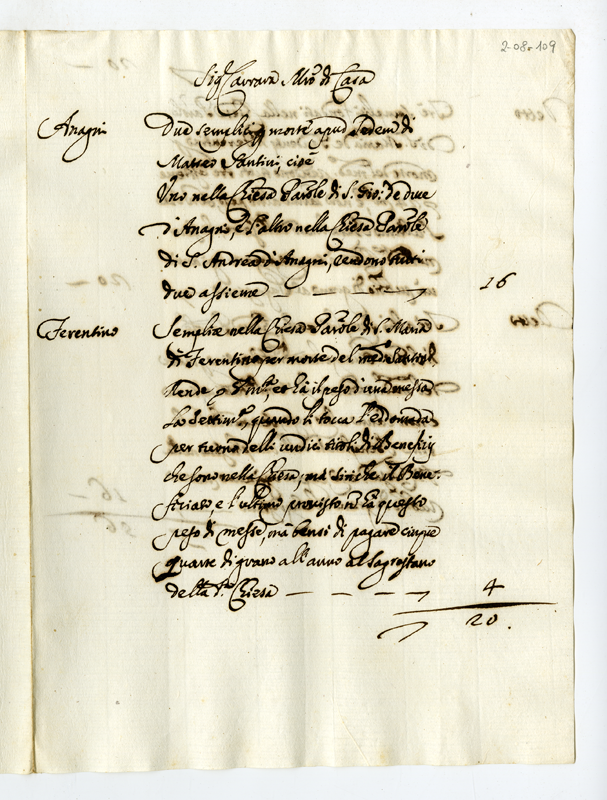 2-08-109
Sig.r Carrara M.ro di Casa
Anagni Due semplici p morte apud Sedem di
Matteo Pantini, cioè
Uno nella Chiesa Par.le di S. Gio: de due
d'Anagni, e l'altro nella Chiesa Par.le
di S. Andrea d'Anagni, rendono tutti
due assieme — — — 16
Ferentino Semplice nella Chiesa Par.le di S. Maria
di Ferentino per morte del med.o
Rende p et hà il peso d'una messa
la Settim.a, quando li tocca l'edomada
per turno delli undici titoli di Beneficij
che sono nella Chiesa, mà sinche il Bene:
ficiato è l'ultimo provisto, non hà questo
peso di messe, mà bensi di pagare cinque
quarte di grano all'anno al Sagrestano
della d.a Chiesa — — — 4
20.